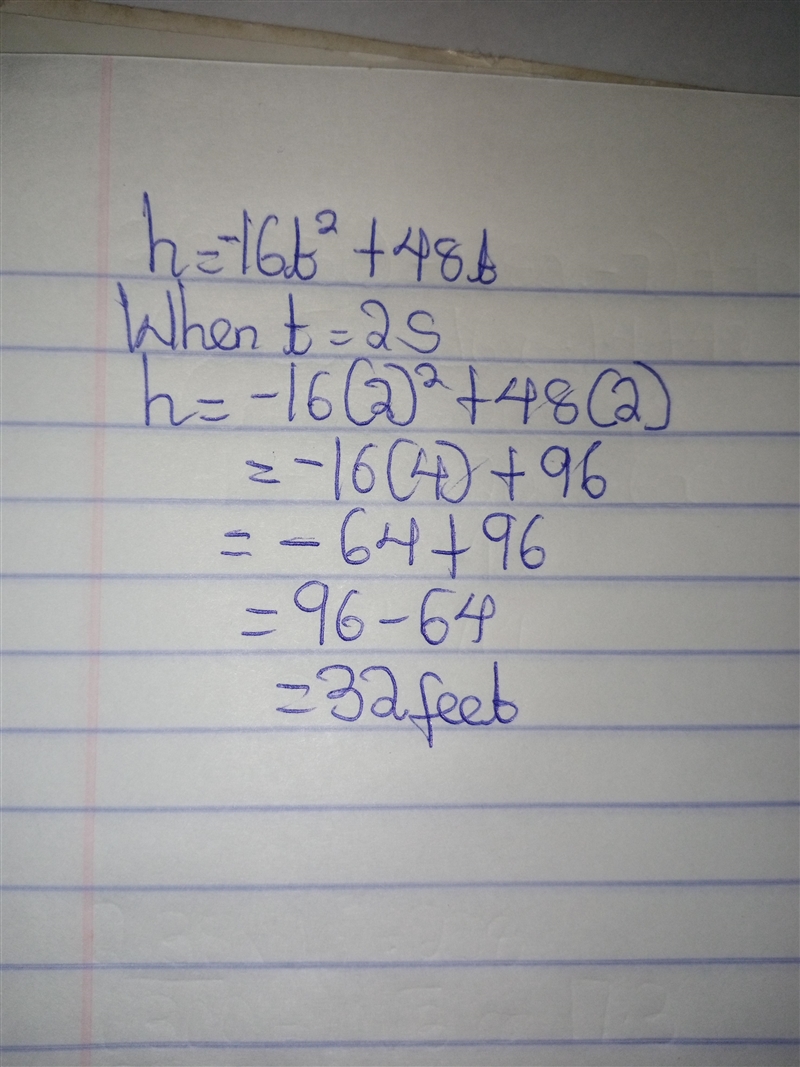 h=-16t² +48t
When t=2S
h= -16(2)² +48(2)
= -16(4) +96
= - 64+96
= 96-64
=32feet